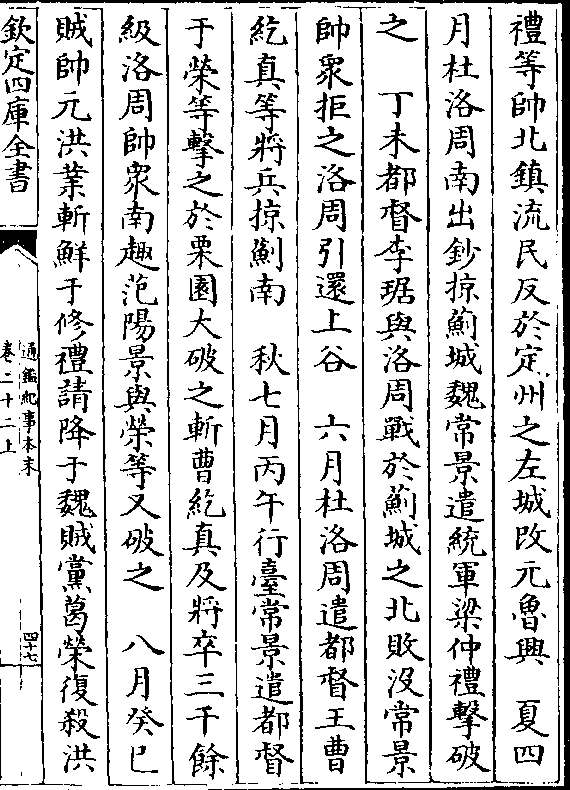 禮等帥北鎮流民反於定州之左城改元魯興　夏四
月杜洛周南出鈔掠薊城魏常景遣統軍梁仲禮擊破
之　丁未都督李琚與洛周戰於薊城之北敗沒常景
帥衆拒之洛周引還上谷　六月杜洛周遣都督王曹
紇真等將兵掠薊南　秋七月丙午行臺常景遣都督
于榮等擊之於栗園大破之斬曹紇真及將卒三千餘
級洛周帥衆南趣范陽景與榮等又破之　八月癸巳
賊帥元洪業斬鮮于修禮請降于魏賊黨葛榮復殺洪
欽定四庫全書
通鑑紀事本末
卷二十二上
四十七